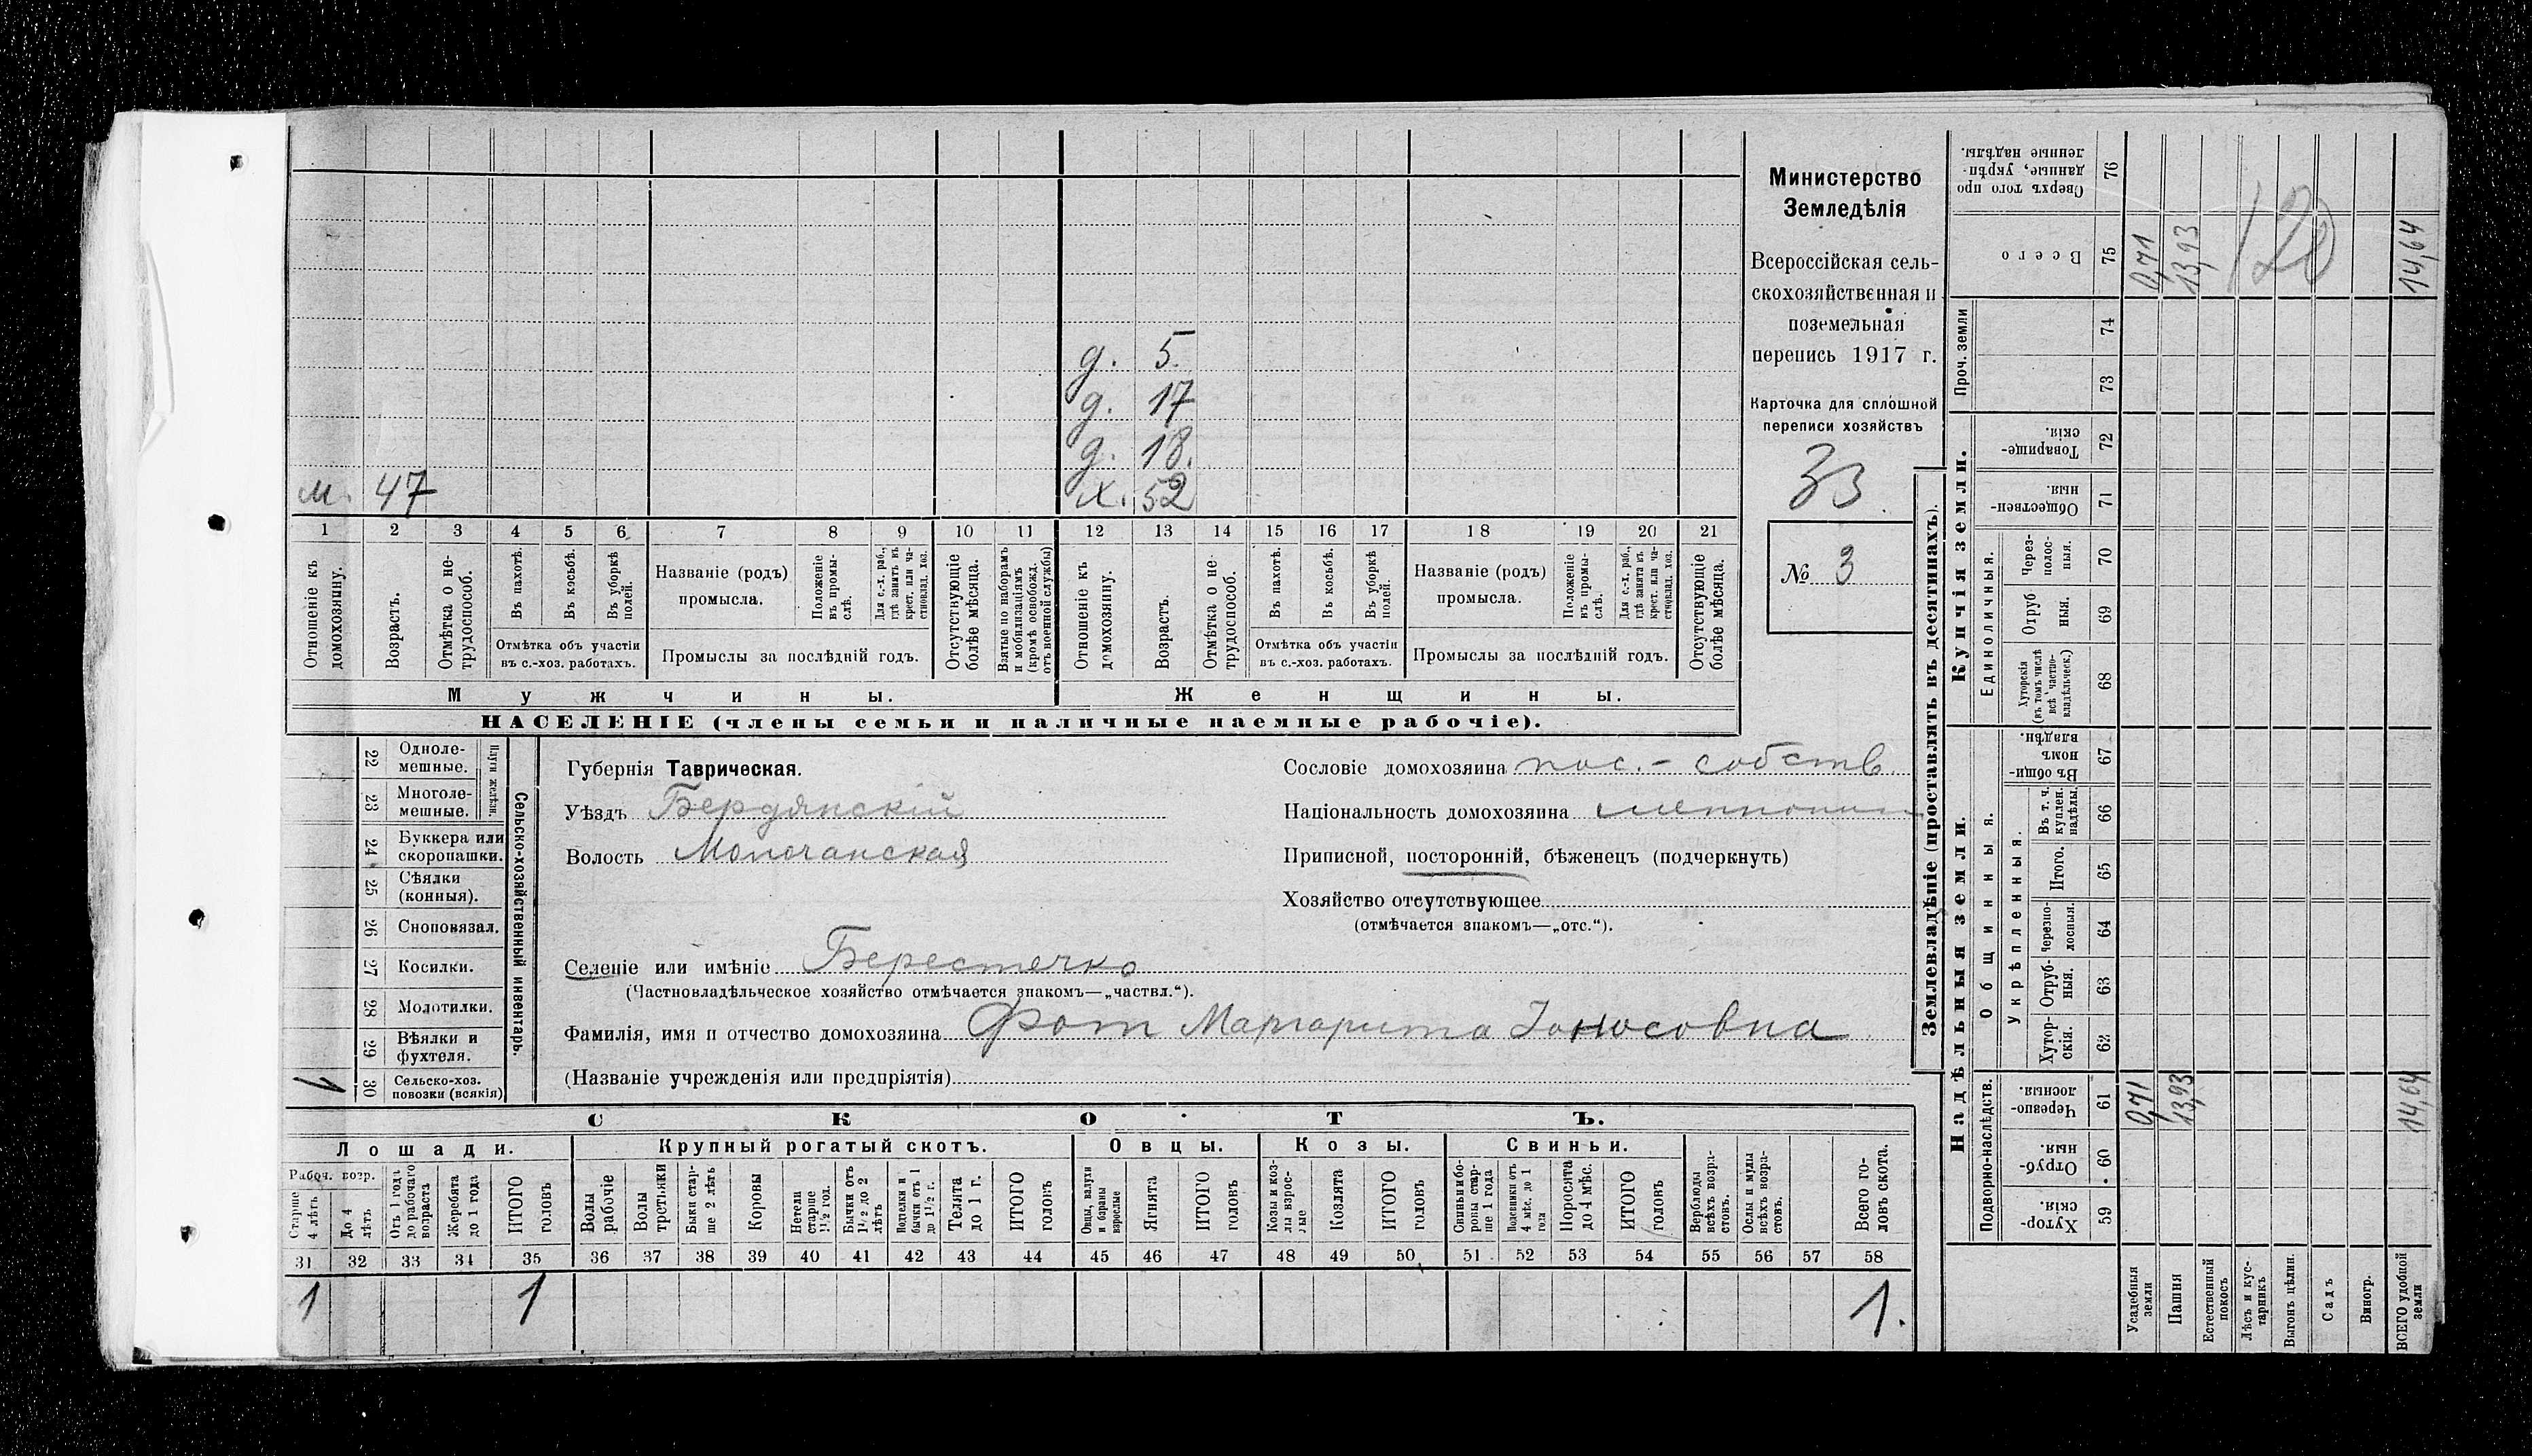 Министерство
Земледѣлія
Всероссійская сель-
скохозяйственная и
поземельная
перепись 1917 г.
Карточка для сплошной
переписи хозяйствъ
33
№ 3
д. 5.
д. 17
д. 18.
м. 47
х. 52
1 2 3 4 5 6 7 8 9 10 11 12 13 14 15 16 17 18 19 20 21
Отношеніе къ домохозяину.
Возрастъ.
Отмѣтка о не-трудоспособ.
Въ пахотѣ.
Въ косьбѣ.
Въ уборкѣ полей.
Отмѣтка объ участіи
въ с.-хоз. работахъ.
Названіе (родъ)
промысла.
Положеніе въ промы-слѣ.
Для с.-х. раб., гдѣ занятъ въ крест. или ча-стновлад. хоз.
Промыслы за послѣдній годъ.
Отсутствующіе болѣе мѣсяца.
Взятые по наборамъ и мобилизаціямъ (кромѣ освобожд. отъ военной службы)
Отношеніе къ домохозяину.
Возрастъ.
Отмѣтка о не-трудоспособ.
Въ пахотѣ.
Въ косьбѣ.
Въ уборкѣ полей.
Отмѣтка объ участіи
въ с.-хоз. работахъ.
Названіе (родъ)
промысла.
Положеніе въ промы-слѣ.
Для с.-х. раб., гдѣ занята въ крест. или ча-стновлад. хоз.
Промыслы за послѣдній годъ.
Отсутствующіе болѣе мѣсяца.
Мужчины. Женщины.
НАСЕЛЕНІЕ (члены семьи и наличные наемные рабочіе).
22 Одноле-мешные.
23 Многоле-мешные.
Плуги желѣзн.
24 Буккера или скоропашки.
25 Сѣялки (конныя).
26 Сноповязал.
27 Косилки.
28 Молотилки.
29 Вѣялки и фухтеля.
30 Сельско-хоз. повозки (всякія)
1
Сельско-хозяйственный инвентарь.
Губернія Таврическая.
Уѣздъ Бердянскій
Волость Молочанская
Селеніе или имѣніе Берестечко
(Частновладѣльческое хозяйство отмѣчается знакомъ—„частвл.“).
Фамилія, имя и отчество домохозяина Фот Маргарита Іоносовна
(Названіе учрежденія или предпріятія)
Сословіе домохозяина пос.- собств
Національность домохозяина меннонит
Приписной, посторонній, бѣженецъ (подчеркнуть)
Хозяйство отсутствующее
(отмѣчается знакомъ—„отс.“).
СКОТЪ.
Лошади. Крупный рогатый скотъ. Овцы. Козы. Свиньи.
Рабоч. возр.
Старше 4 лѣтъ
До 4 лѣтъ
Отъ 1 года до рабочаго возраста
Жеребята до 1 года
ИТОГО головъ
Волы рабочіе
Волы третьяки
Быки стар-ше 2 лѣтъ
Коровы
Нетели старше 1½ год.
Бычки отъ 1½ до 2 лѣтъ
Нетелки и бычки отъ 1 до 1½ г.
Телята до 1 г.
ИТОГО головъ
Овцы, валухи и бараны взрослые
Ягнята
ИТОГО головъ
Козы и коз-лы взрос-лые
Козлята
ИТОГО головъ
Свиньи и бо-ровы стар-ше 1 года
Подсвинки отъ 4 мѣс. до 1 года
Поросята до 4 мѣс.
ИТОГО головъ
Верблюды всѣхъ возра-стовъ.
Ослы и мулы всѣхъ возра-стовъ.
Всего го-ловъ скота.
31 32 33 34 35 36 37 38 39 40 41 42 43 44 45 46 47 48 49 50 51 52 53 54 55 56 57 58
1 1 1.
Землевладѣніе (проставлять въ десятинахъ).
Надѣльныя земли. Купчія земли. Проч. земли
Подворно-наслѣдств. Общинныя. Укрѣпленныя. Единоличныя.
Хутор-скія. 59
Отруб-ныя. 60
Черезпо-лосныя. 61
Хутор-скія. 62
Отруб-ныя. 63
Черезпо-лосныя. 64
Итого. 65
Въ т. ч. куплен. надѣлы. 66
Въ общин-номъ владѣн. 67
Хуторскія (въ томъ числѣ всѣ частно-владѣльческ.) 68
Отруб ныя. 69
Через-полос-ныя. 70
Обществен-ныя. 71
Товарище-скія. 72
73
74
Всего 75
Сверхъ того про данные, укрѣп-ленные надѣлы. 76
Усадебныя земли
Пашня
Естественный покосъ
Лѣсъ и кус-тарникъ
Выгонъ цѣлин.
Садъ
Виногр.
ВСЕГО удобной земли
0,71 13,93 14,64
0,71 13,93 14,64
120